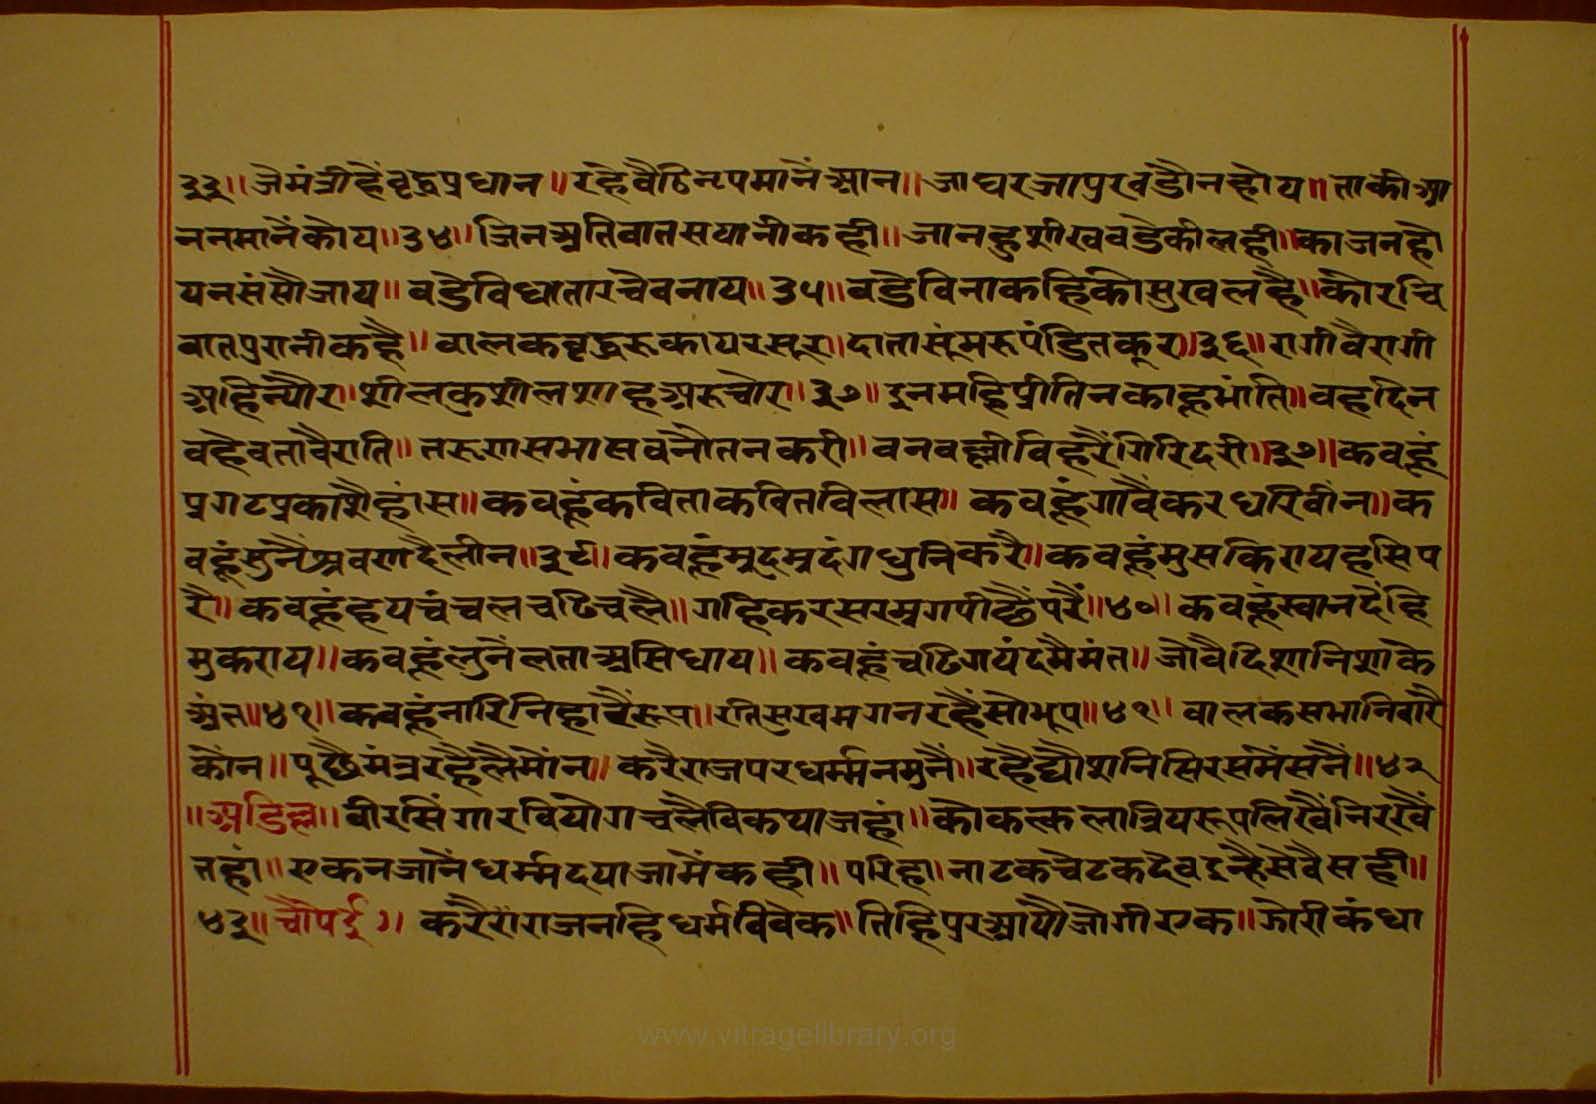 ३३॥ जेमंत्रीहैंवृद्धप्रधान॥ रहैवैठिनृपमानैंआन॥ जाघरजापुरवंडौनहोय॥ ताकीआ
ननमानैंकोय॥३४॥ जिनश्रुतिवातसयानीकही॥ जानहुशीखवडेकीलही॥ काजनहो
यनसंसौजाय॥ वडेविधातारचेवनाय॥३५॥ वडेविनाकहिकोसुखलहै॥ कोरचि
वातपुरानीकहै॥ वालकवृद्धरुकायरसूर॥ दातासूंमरूपंडितकूर॥३६॥ रागीवैरागी
अहिन्यौर॥ शीलकुशीलशाहअरुचोर॥३७॥ इनमहिप्रीतिनकाहूभांति॥ वहदिन
वहैवतावैराति॥ तरूणसभासवनौतनकरी॥ वनवल्लीविहरैंगिरिदरी॥३७॥ कवहूं
प्रगटप्रकाशैहांस॥ कवहूंकविताकवितविलास॥ कवहूंगावैंकरधरिवीन॥ क
वहूंसुनैंश्रवणदैलीन॥३९॥ कवहूंमृदमृदंगधुनिकरै॥ कवहूंमुसकिरायहसिप
रै॥ कवहूंहयचंचलचढिचलै॥ गहिकरसरमृगपीछैंपरैं॥४०॥ कवहूंस्वानदैंहि
मुकराय॥ कवहूंलुनैंलताअसिधाय॥ कवहूंचढिगयंदमैमंत॥ जोवैदिशानिशाके
अंत॥४१॥ कवहूंनारिनिहारैंरूप॥ रतिसुखमगनरहैंसोभूप॥४१॥ वालकसभानिवारै
कौंन॥ पूछैमंत्ररहैंलैमौंन॥ करैराजपरधर्म्मनसुनैं॥ रहैद्यौशनिसिरसमैंसनैं॥४२
॥अडिल्ल॥ वीरसिंगारवियोगचलैविकथाजहां॥ कोककलात्रियरूपलिखैंनिरखैं
तहां॥ एकनजानैंधर्म्मदयाजामैंकही॥ परिहा॥ नाटकचेटकदेवइन्हैसेवैसही॥
४३॥ चौपई॥ करैराजनहिधर्मविवेक॥ तिहिपुरआयौजोगीएक॥ झोरीकंथा